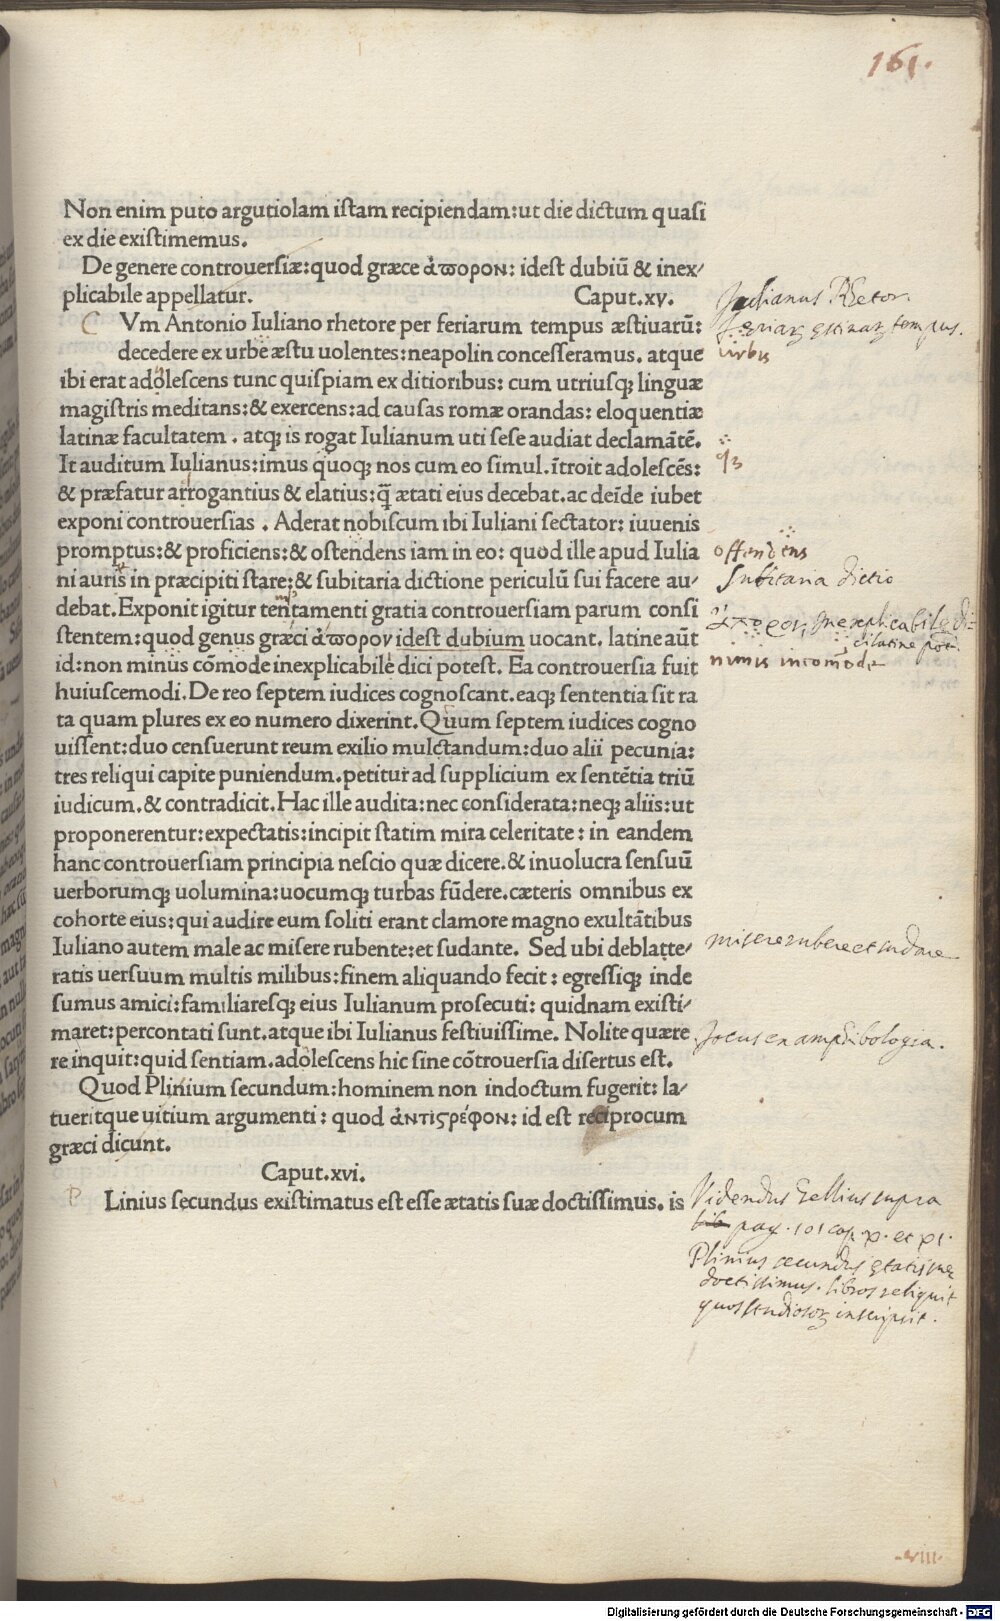 161.
Non enim puto argutiolam istam recipiendam:ut die dictum quasi
ex die existimemus.
De genere controuersiæ:quod græce ἄπορον: idest dubiū & inex/
plicabile appellatur. Caput.xv.
C Vm Antonio Iuliano rhetore per feriarum tempus æstiuarū:
decedere ex urbe æstu uolentes:neapolin concesseramus. atque
ibi erat adolescens tunc quispiam ex ditioribus: cum utriusq; linguæ
magistris meditans:& exercens:ad causas romæ orandas: eloquentiæ
latinæ facultatem . atq; is rogat Iulianum uti sese audiat declamātē.
It auditum Iulianus:imus quoq; nos cum eo simul.ītroit adolescēs:
& præfatur arrogantius & elatius:q̄ ætati eius decebat.ac deīde iubet
exponi controuersias . Aderat nobiscum ibi Iuliani sectator: iuuenis
promptus:& proficiens:& ostendens iam in eo: quod ille apud Iulia
ni auris in præcipiti stare:& subitaria dictione periculū sui facere au/
debat.Exponit igitur tentamenti gratia controuersiam parum consi
stentem:quod genus græci ἄπορον idest dubium uocant. latine aūt
id:non minus cōmode inexplicabile dici potest. Ea controuersia fuit
huiuscemodi. De reo septem iudices cognoscant.eaq; sententia sit ra
ta quam plures ex eo numero dixerint.Quum septem iudices cogno
uissent:duo censuerunt reum exilio mulctandum:duo alii pecunia:
tres reliqui capite puniendum.petitur ad supplicium ex sentētia triū
iudicum.& contradicit.Hac ille audita:nec considerata:neq; aliis:ut
proponerentur:expectatis:incipit statim mira celeritate: in eandem
hanc controuersiam principia nescio quæ dicere.& inuolucra sensuū
uerborumq; uolumina:uocumq; turbas fūdere.cæteris omnibus ex
cohorte eius:qui audire eum soliti erant clamore magno exultātibus
Iuliano autem male ac misere rubente:et sudante. Sed ubi deblatte/
ratis uersuum multis milibus:finem aliquando fecit: egressiq; inde
sumus amici:familiaresq; eius Iulianum prosecuti: quidnam existi/
maret:percontati sunt.atque ibi Iulianus festiuissime. Nolite quære
re inquit:quid sentiam.adolescens hic sine cōtrouersia disertus est.
Quod Plinium secundum:hominem non indoctum fugerit: la/
tueritque uitium argumenti: quod ἀντιςρέφον: id est reciprocum
græci dicunt.
Caput.xvi.
P Linius secundus existimatus est esse ætatis suæ doctissimus. is
Julianus Rhetor.
tempus.
urbis
offendens
Subitana dictio
inexplicabile
nimis incom̄ode
misere rubere et sudare
Jocus ex amphibologia.
Videndus Gellius supra
pag. 101 cap x. et xi.
Plinius secundus ętatis suę
doctissimus. libros reliquit
quos studiosor inscripsit.
viii.
Digitalisierung gefördert durch die Deutsche Forschungsgemeinschaft - DFG